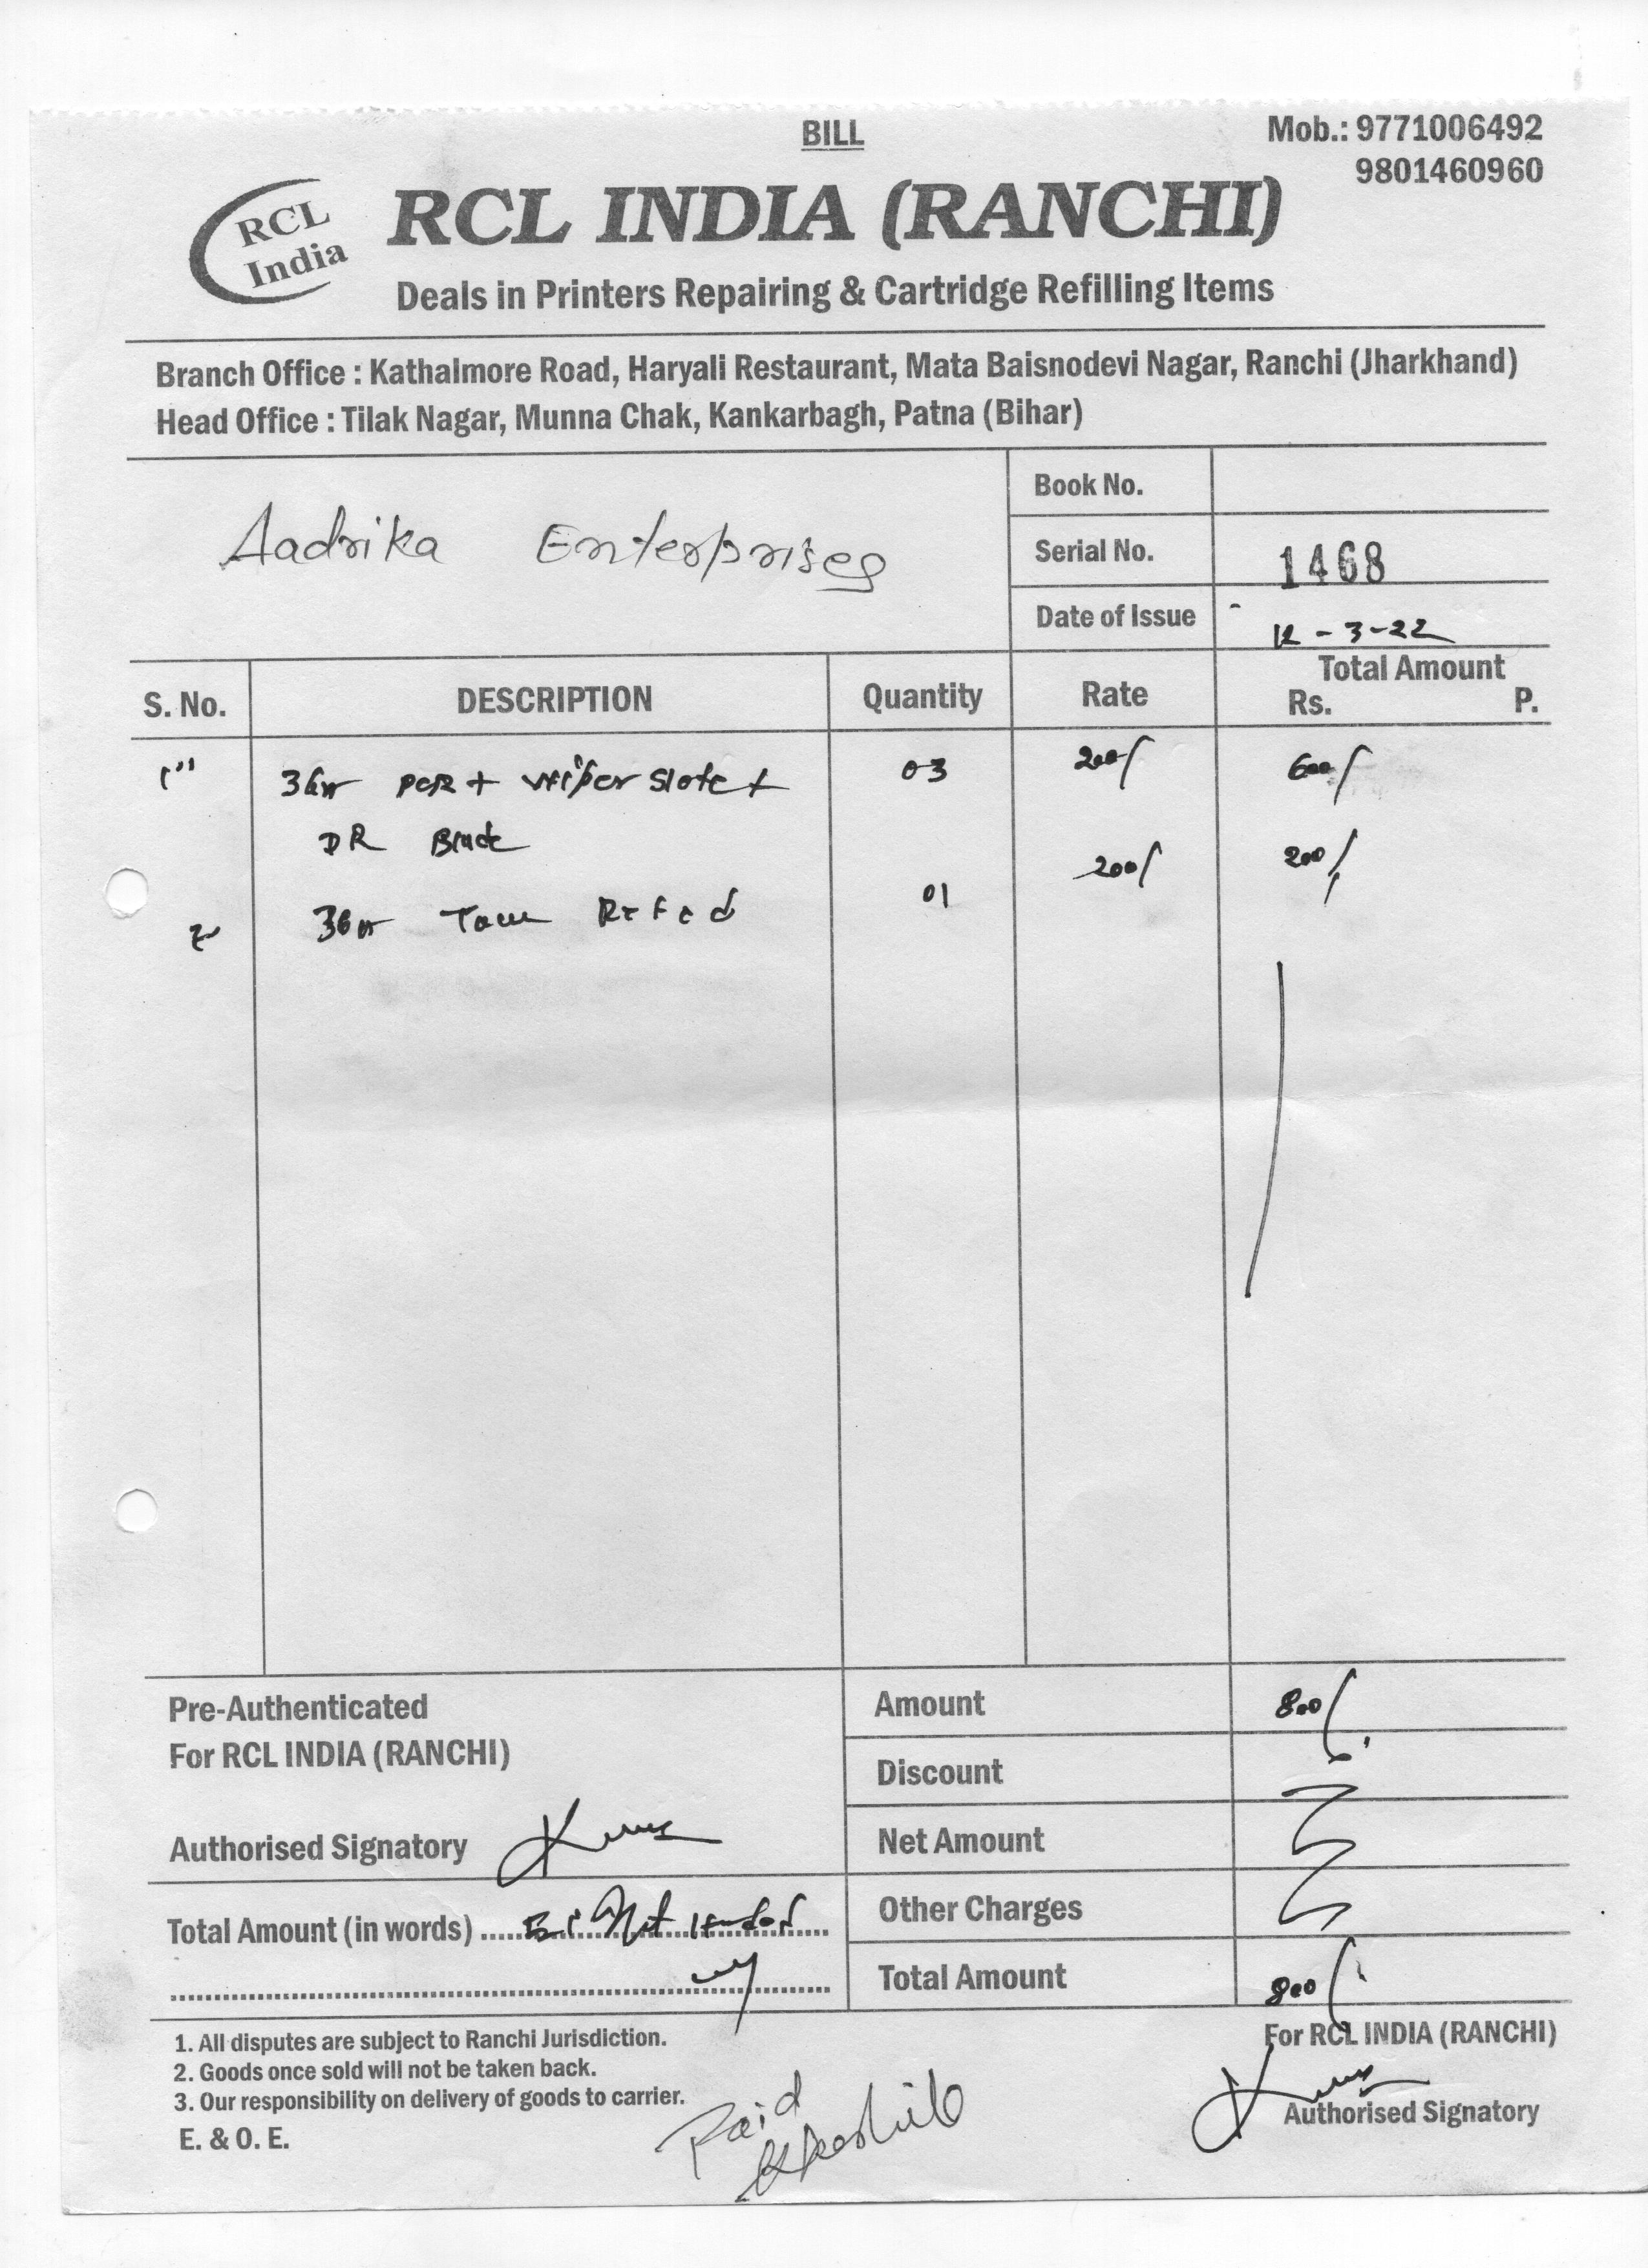 BILL
Mob.: 9771006492
9801460960
RCL India
RCL INDIA (RANCHI)
Deals in Printers Repairing & Cartridge Refilling Items
Branch Office : Kathalmore Road, Haryali Restaurant, Mata Baisnodevi Nagar, Ranchi (Jharkhand)
Head Office : Tilak Nagar, Munna Chak, Kankarbagh, Patna (Bihar)
Aadrika Enterprises
Book No.
Serial No. 1468
Date of Issue 12-3-22
S. No. DESCRIPTION Quantity Rate Total Amount
Rs. P.
1 PCR + wiper 03 200/ 600/
DR Blade
2 01 200/ 200/
Pre-Authenticated
For RCL INDIA (RANCHI)
Authorised Signatory
Amount 800/
Discount
Net Amount
Other Charges
Total Amount 800/
Total Amount (in words)
1. All disputes are subject to Ranchi Jurisdiction.
2. Goods once sold will not be taken back.
3. Our responsibility on delivery of goods to carrier.
E. & O. E.
Paid
For RCL INDIA (RANCHI)
Authorised Signatory